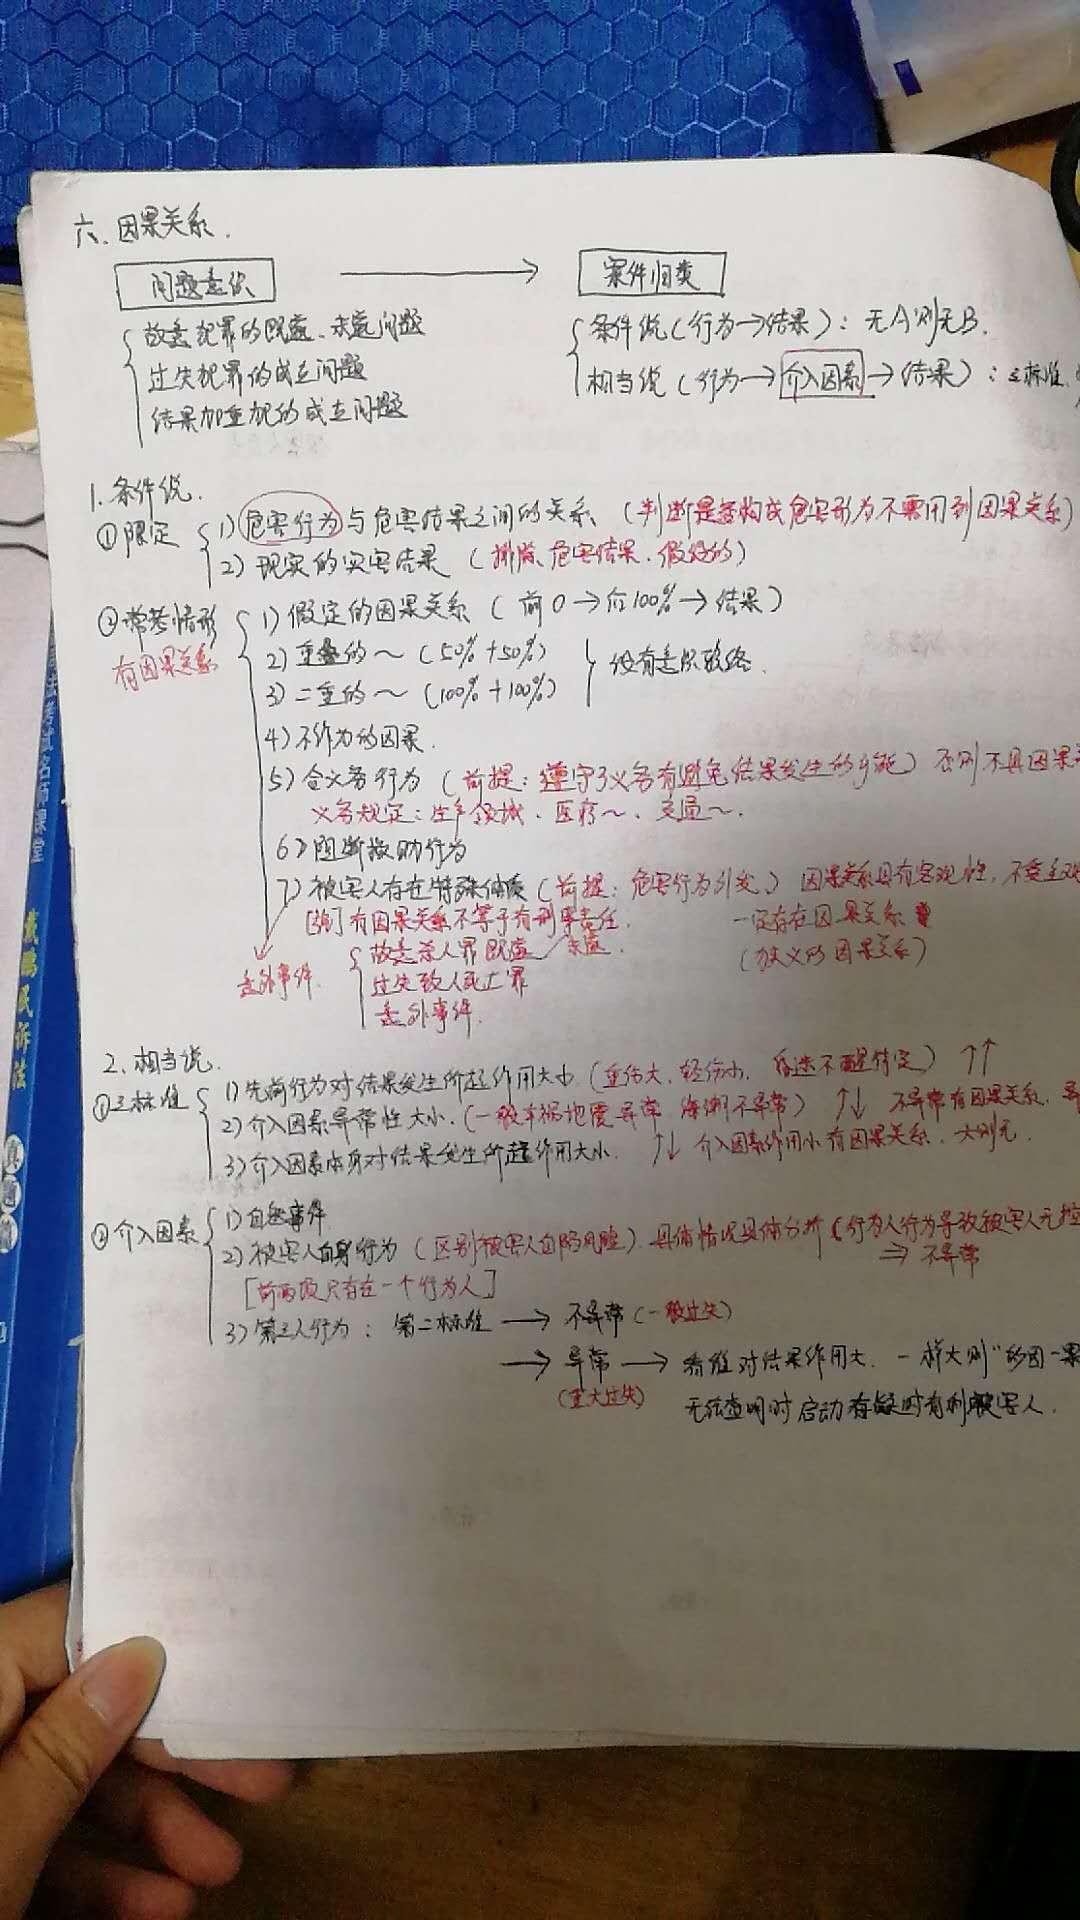 六、因果关系.
问题意识 → 案件归类
故意犯罪的既遂、未遂问题
过失犯罪的成立问题
结果加重犯的成立问题
条件说(行为→结果): 无A则无B.
相当说(行为→介入因素→结果): 三标准、
1.条件说.
①限定
1)危害行为与危害结果之间的关系 (判断是否构成危害形为不需用到因果关系)
2)现实的实害结果 (排除、危害结果、假设的)
②常考情形
有因果关系
1)假定的因果关系 (前0→后100%→结果)
2)重叠的~ (50%+50%)
3)二重的~ (100%+100%)
没有意思联络.
4)不作为的因果.
5)合义务行为 (前提: 遵守了义务有避免结果发生的可能) 否则不具因果
义务规定: 生产领域、医疗~、交通~.
6)阻断救助行为
7)被害人存在特殊体质 (前提: 危害行为引发) 因果关系具有客观性, 不受主观
有因果关系不等于有刑事责任.
一定存在因果关系
(狭义的因果关系)
意外事件.
故意杀人罪既遂/未遂
过失致人死亡罪
意外事件.
2.相当说.
①三标准
1)先前行为对结果发生所起作用大小 (重伤大、轻伤小、昏迷不醒待定) ↑↑
2)介入因素异常性大小. (一般车祸地震异常 海潮不异常) ↑↓ 不异常有因果关系, 异
3)介入因素本身对结果发生所起作用大小. ↑↓ 介入因素作用小有因果关系, 大则无.
②介入因素
1)自然事件
2)被害人自身行为 (区别被害人自陷风险). 具体情况具体分析 (行为人行为导致被害人无
⇒ 不异常
[前两项只存在一个行为人]
3)第三人行为: 第二标准 → 不异常 (一般过失)
→ 异常 → 看谁对结果作用大. 一样大则"多因一果
(重大过失)
无法查明时启动存疑时有利被害人.
戴鹏民诉法
真题